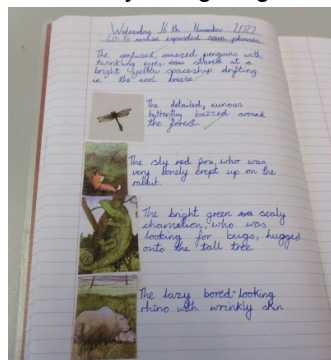 Wednesday 16th November 2022
L.O. To revise expanded noun phrases
The confused, amazed penguins with
twinkling eyes saw stared at a
bright yellow spaceship drifting
in the cool breeze.
The detailed, curious
butterfly buzzed around
the forest.
The sly red fox, who was
very lonely crept up on the
rabbit.
The bright green scaly
chamelion, who was
looking for bugs, hugged
onto the tall tree
The lazy bored-looking
rhino with wrinkly skin